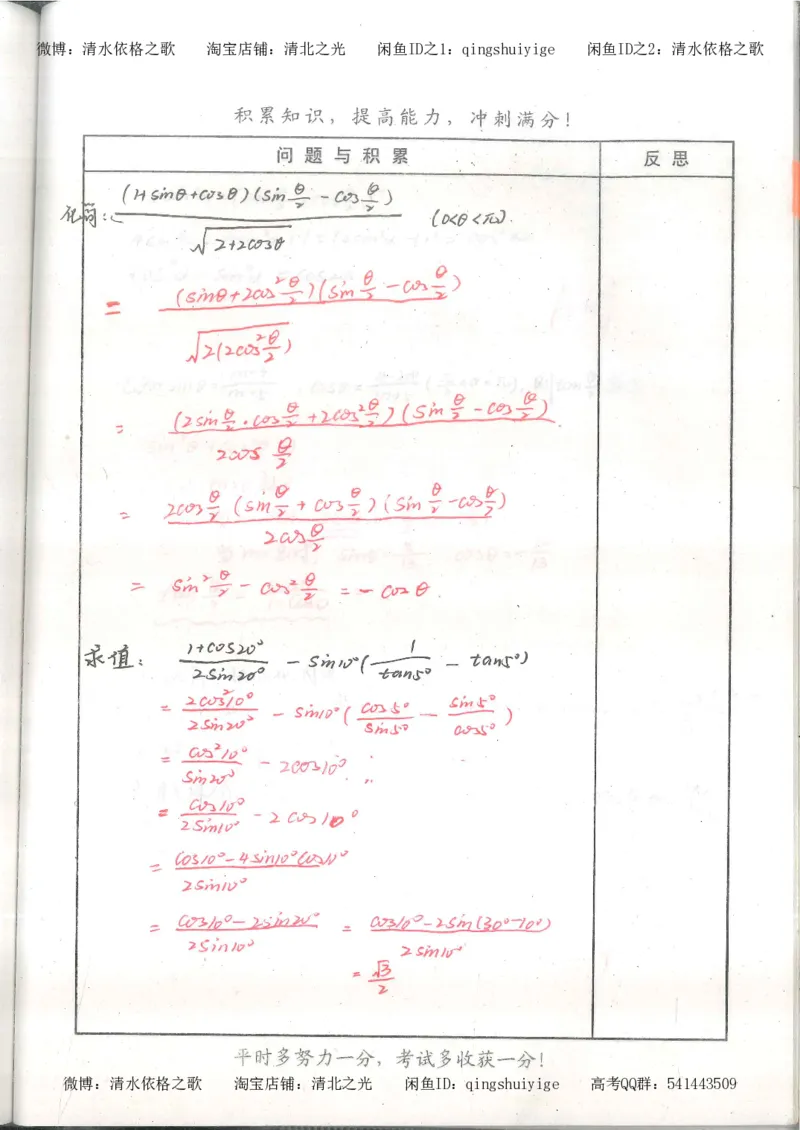 微博：清水依格之歌 淘宝店铺：清北之光 闲鱼ID之1：qingshuiyige 闲鱼ID之2：清水依格之歌
积累知识，提高能力，冲刺满分！
问题与积累 反思
化简：(1+sinθ+cosθ)(sin θ/2 - cos θ/2) / √(2+2cosθ) (0<θ<π).
= (sinθ+2cos² θ/2)(sin θ/2 - cos θ/2) / √(2(2cos² θ/2))
= (2sin θ/2 · cos θ/2 + 2cos² θ/2)(sin θ/2 - cos θ/2) / 2cos θ/2
= 2cos θ/2 (sin θ/2 + cos θ/2)(sin θ/2 - cos θ/2) / 2cos θ/2
= sin² θ/2 - cos² θ/2 = -cosθ.
求值：(1+cos20°)/(2sin20°) - sin10°(1/tan5° - tan5°)
= 2cos²10°/2sin20° - sin10°(cos5°/sin5° - sin5°/cos5°)
= cos²10°/sin20° - 2cos10°
= cos10°/2sin10° - 2cos10°
= (cos10°-4sin10°cos10°)/2sin10°
= (cos10°-2sin20°)/2sin10° = (cos10°-2sin(30°-10°))/2sin10°
= √3/2
平时多努力一分，考试多收获一分！
微博：清水依格之歌 淘宝店铺：清北之光 闲鱼ID：qingshuiyige 高考QQ群：541443509